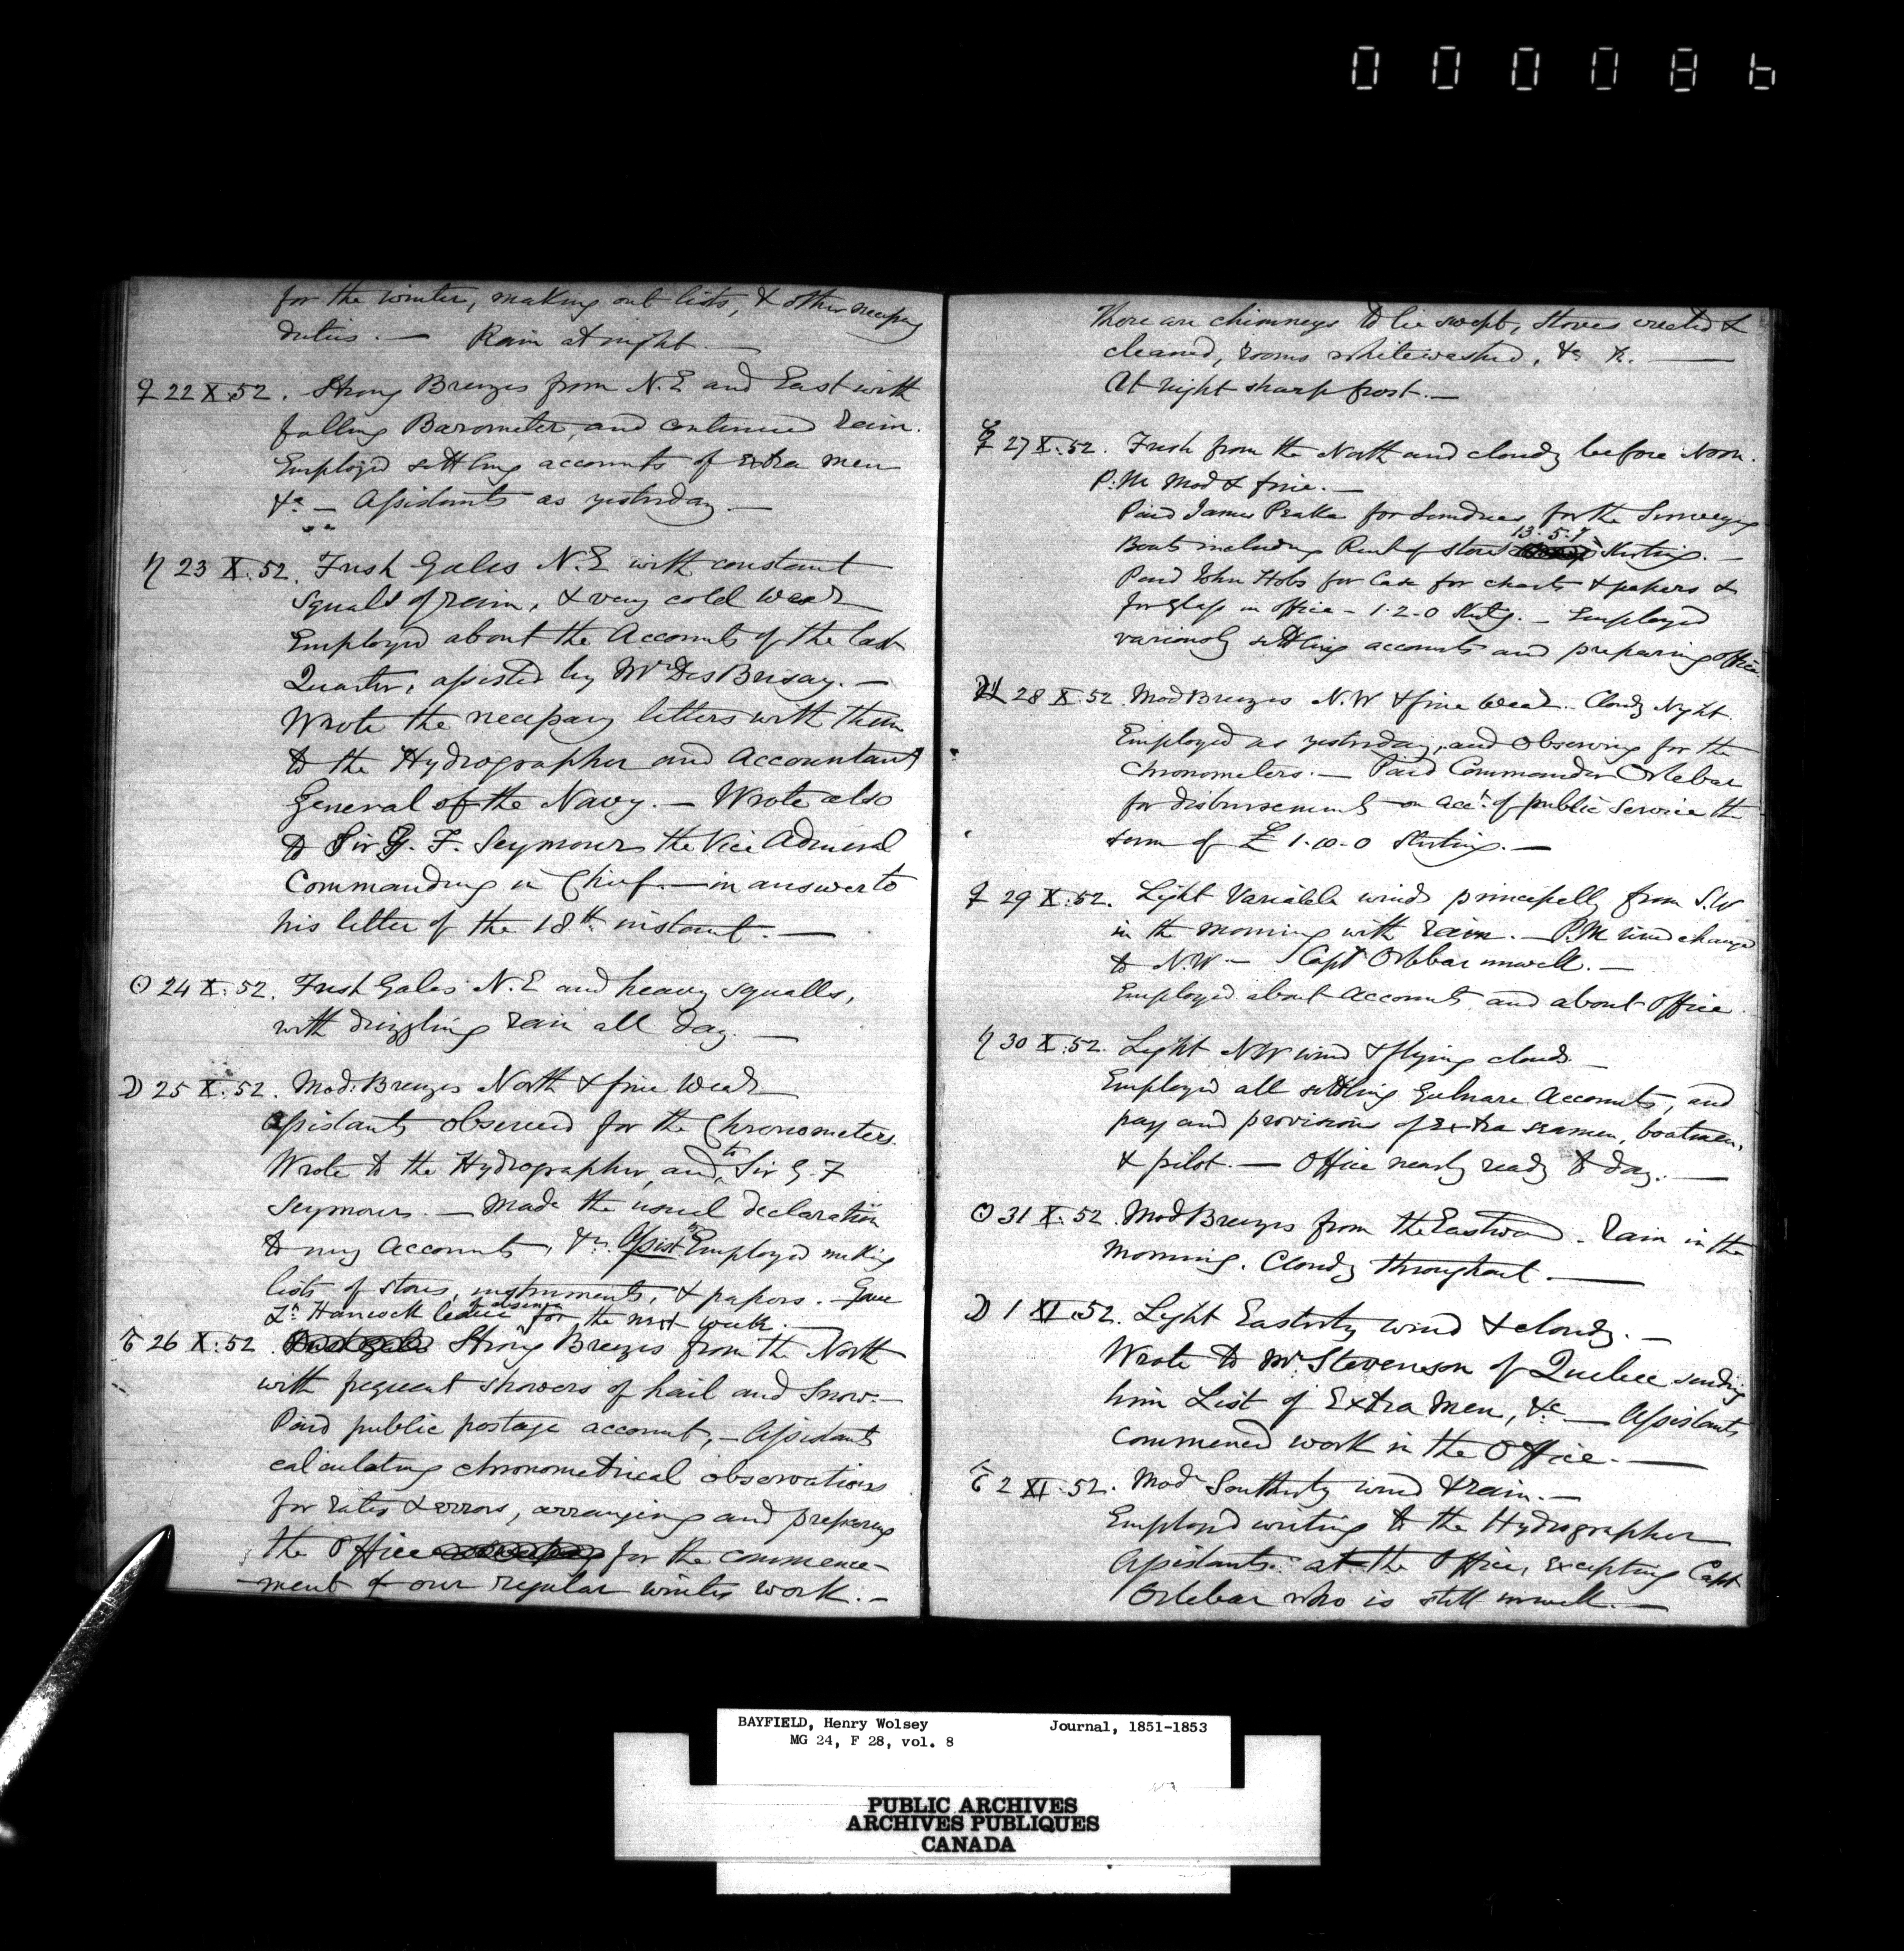 000086
for the winter, making out lists, & other necessary
duties. — Rain at night. —
♀ 22 X. 52. Strong Breezes from N.E and East with
falling Barometer, and continued rain.
Employed settling accounts of Extra men
&a — Assistants as yesterday —
♄ 23 X. 52. Fresh Gales N.E with constant
squalls of rain, & very cold Wear
Employed about the Accounts of the last
Quarter, assisted by Mr DesBrisay. —
Wrote the necessary letters with them
to the Hydrographer and Accountant
General of the Navy. — Wrote also
to Sir G. F. Seymour the Vice Admiral
Commanding in Chief — in answer to
his letter of the 18th instant. —
☉ 24 X. 52. Fresh Gales N.E and heavy squalls,
with drizzling rain all day. —
☽ 25 X. 52. Mod: Breezes North & fine Wear
Assistants observed for the Chronometers.
Wrote to the Hydrographer, and to Sir G. F
Seymour. — Made the usual declaration
to my Accounts, &c. Assists Employed making
lists of stores, instruments, & papers. — Gave
Lt Hancock leave of absence for the next week. —
♂ 26 X. 52. Strong Breezes from the North
with frequent showers of hail and Snow. —
Paid public postage account, — Assistants
calculating chronometrical observations
for rates & errors, arranging and preparing
the Office for the commence-
ment of our regular winter work. —
There are chimneys to be swept, stoves erected &
cleaned, rooms whitewashed, &c &c. —
At night sharp frost. —
☿ 27 X. 52. Fresh from the North and cloudy before Noon.
P.M Mod & fine. —
Paid James Peake for Sundries for the Surveying
Boats including Rent of store 13.5.7 Sterling. —
Paid John Hobs for Case for charts & papers &
for glass in office - 1.2.0 Sterlg. — Employed
variously settling accounts and preparing office
♃ 28 X. 52 Mod Breezes N.W & fine Wear. Cloudy Night.
Employed as yesterday, and observing for the
Chronometers. — Paid Commander Orlebar
for disbursements on acct of public service the
sum of £ 1.0.0 Sterling. —
♀ 29 X. 52. Light Variable winds principally from S.W
in the morning with rain. — P.M wind changed
to N.W — Capt Orlebar unwell. —
Employed about Accounts and about Office.
♄ 30 X. 52. Light NW wind & flying clouds —
Employed all settling Gulnare Accounts, and
pay and provisions of Extra seamen, boatmen,
& pilot. — Office nearly ready to day. —
☉ 31 X. 52. Mod Breezes from the Eastward. Rain in the
morning. Cloudy throughout. —
☽ 1 XI. 52. Light Easterly wind & cloudy. —
Wrote to Mr Stevenson of Quebec sending
him List of Extra Men, &c — Assistants
commenced work in the Office. —
♂ 2 XI. 52. Modr Southerly wind & rain. —
Employed writing to the Hydrographer
Assistants at the Office, excepting Capt
Orlebar who is still unwell. —
BAYFIELD, Henry Wolsey Journal, 1851-1853
MG 24, F 28, vol. 8
PUBLIC ARCHIVES
ARCHIVES PUBLIQUES
CANADA